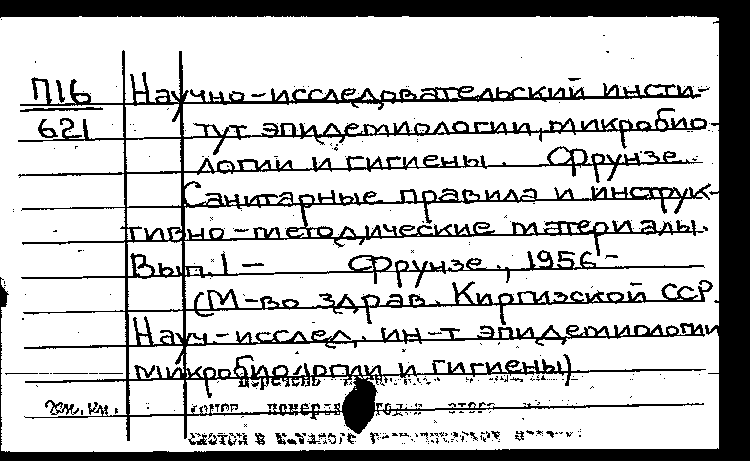 П16 Научно-исследовательский инсти-
621 тут эпидемиологии, микробио-
логии и гигиены. Фрунзе.
Санитарные правила и инструк-
тивно-методические материалы.
Вып. 1 – Фрунзе, 1956 -
(М-во здрав. Киргизской ССР.
Науч.-исслед. ин-т эпидемиологии
микробиологии и гигиены)
Перечень
номеров годов этого
смотри в каталоге